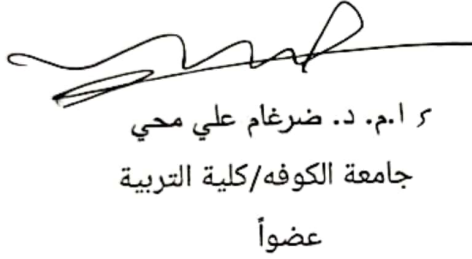 ا.م. د. ضرغام علي محي
جامعة الكوفه/كلية التربية
عضواً